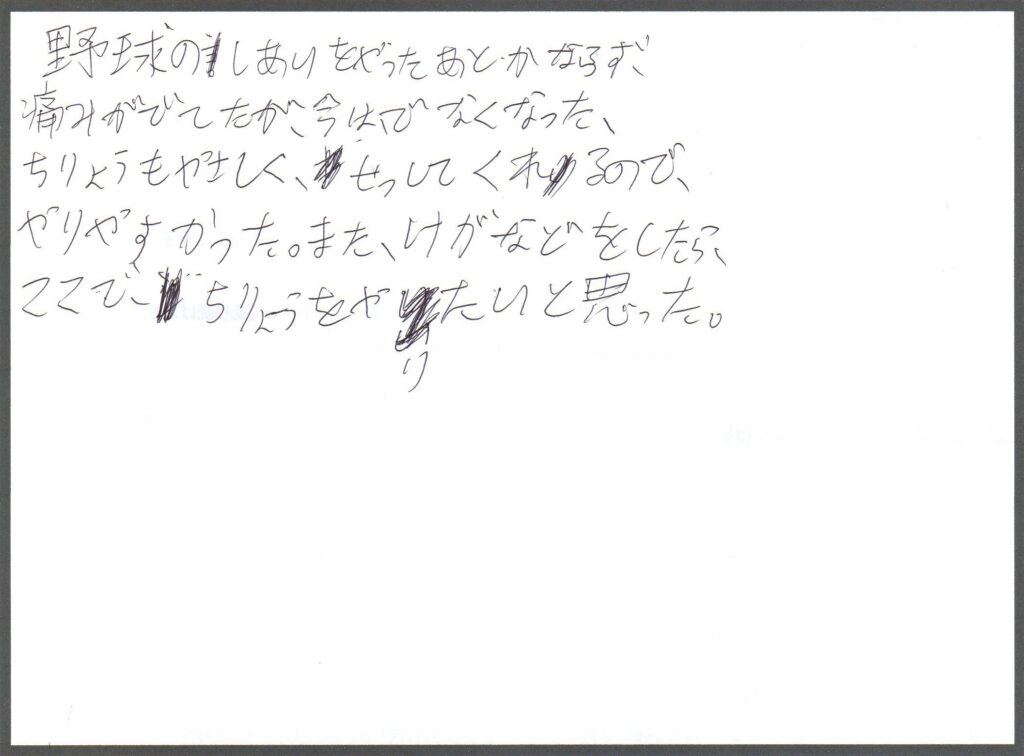 野球のしあいをやったあとかならず、
痛みがでてたが、今は、でなくなった、
ちりょうもやさしく、せっしてくれるので、
やりやすかった。また、けがなどをしたら、
ここで、ちりょうをやりたいと思った。